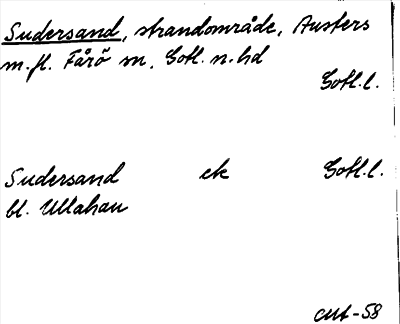 Sudersand, strandområde, Austers
m.fl. Fårö sn. Gotl. n. hd
Gotl. l.
Sudersand ek Gotl. l.
bl. Ullahau
-58